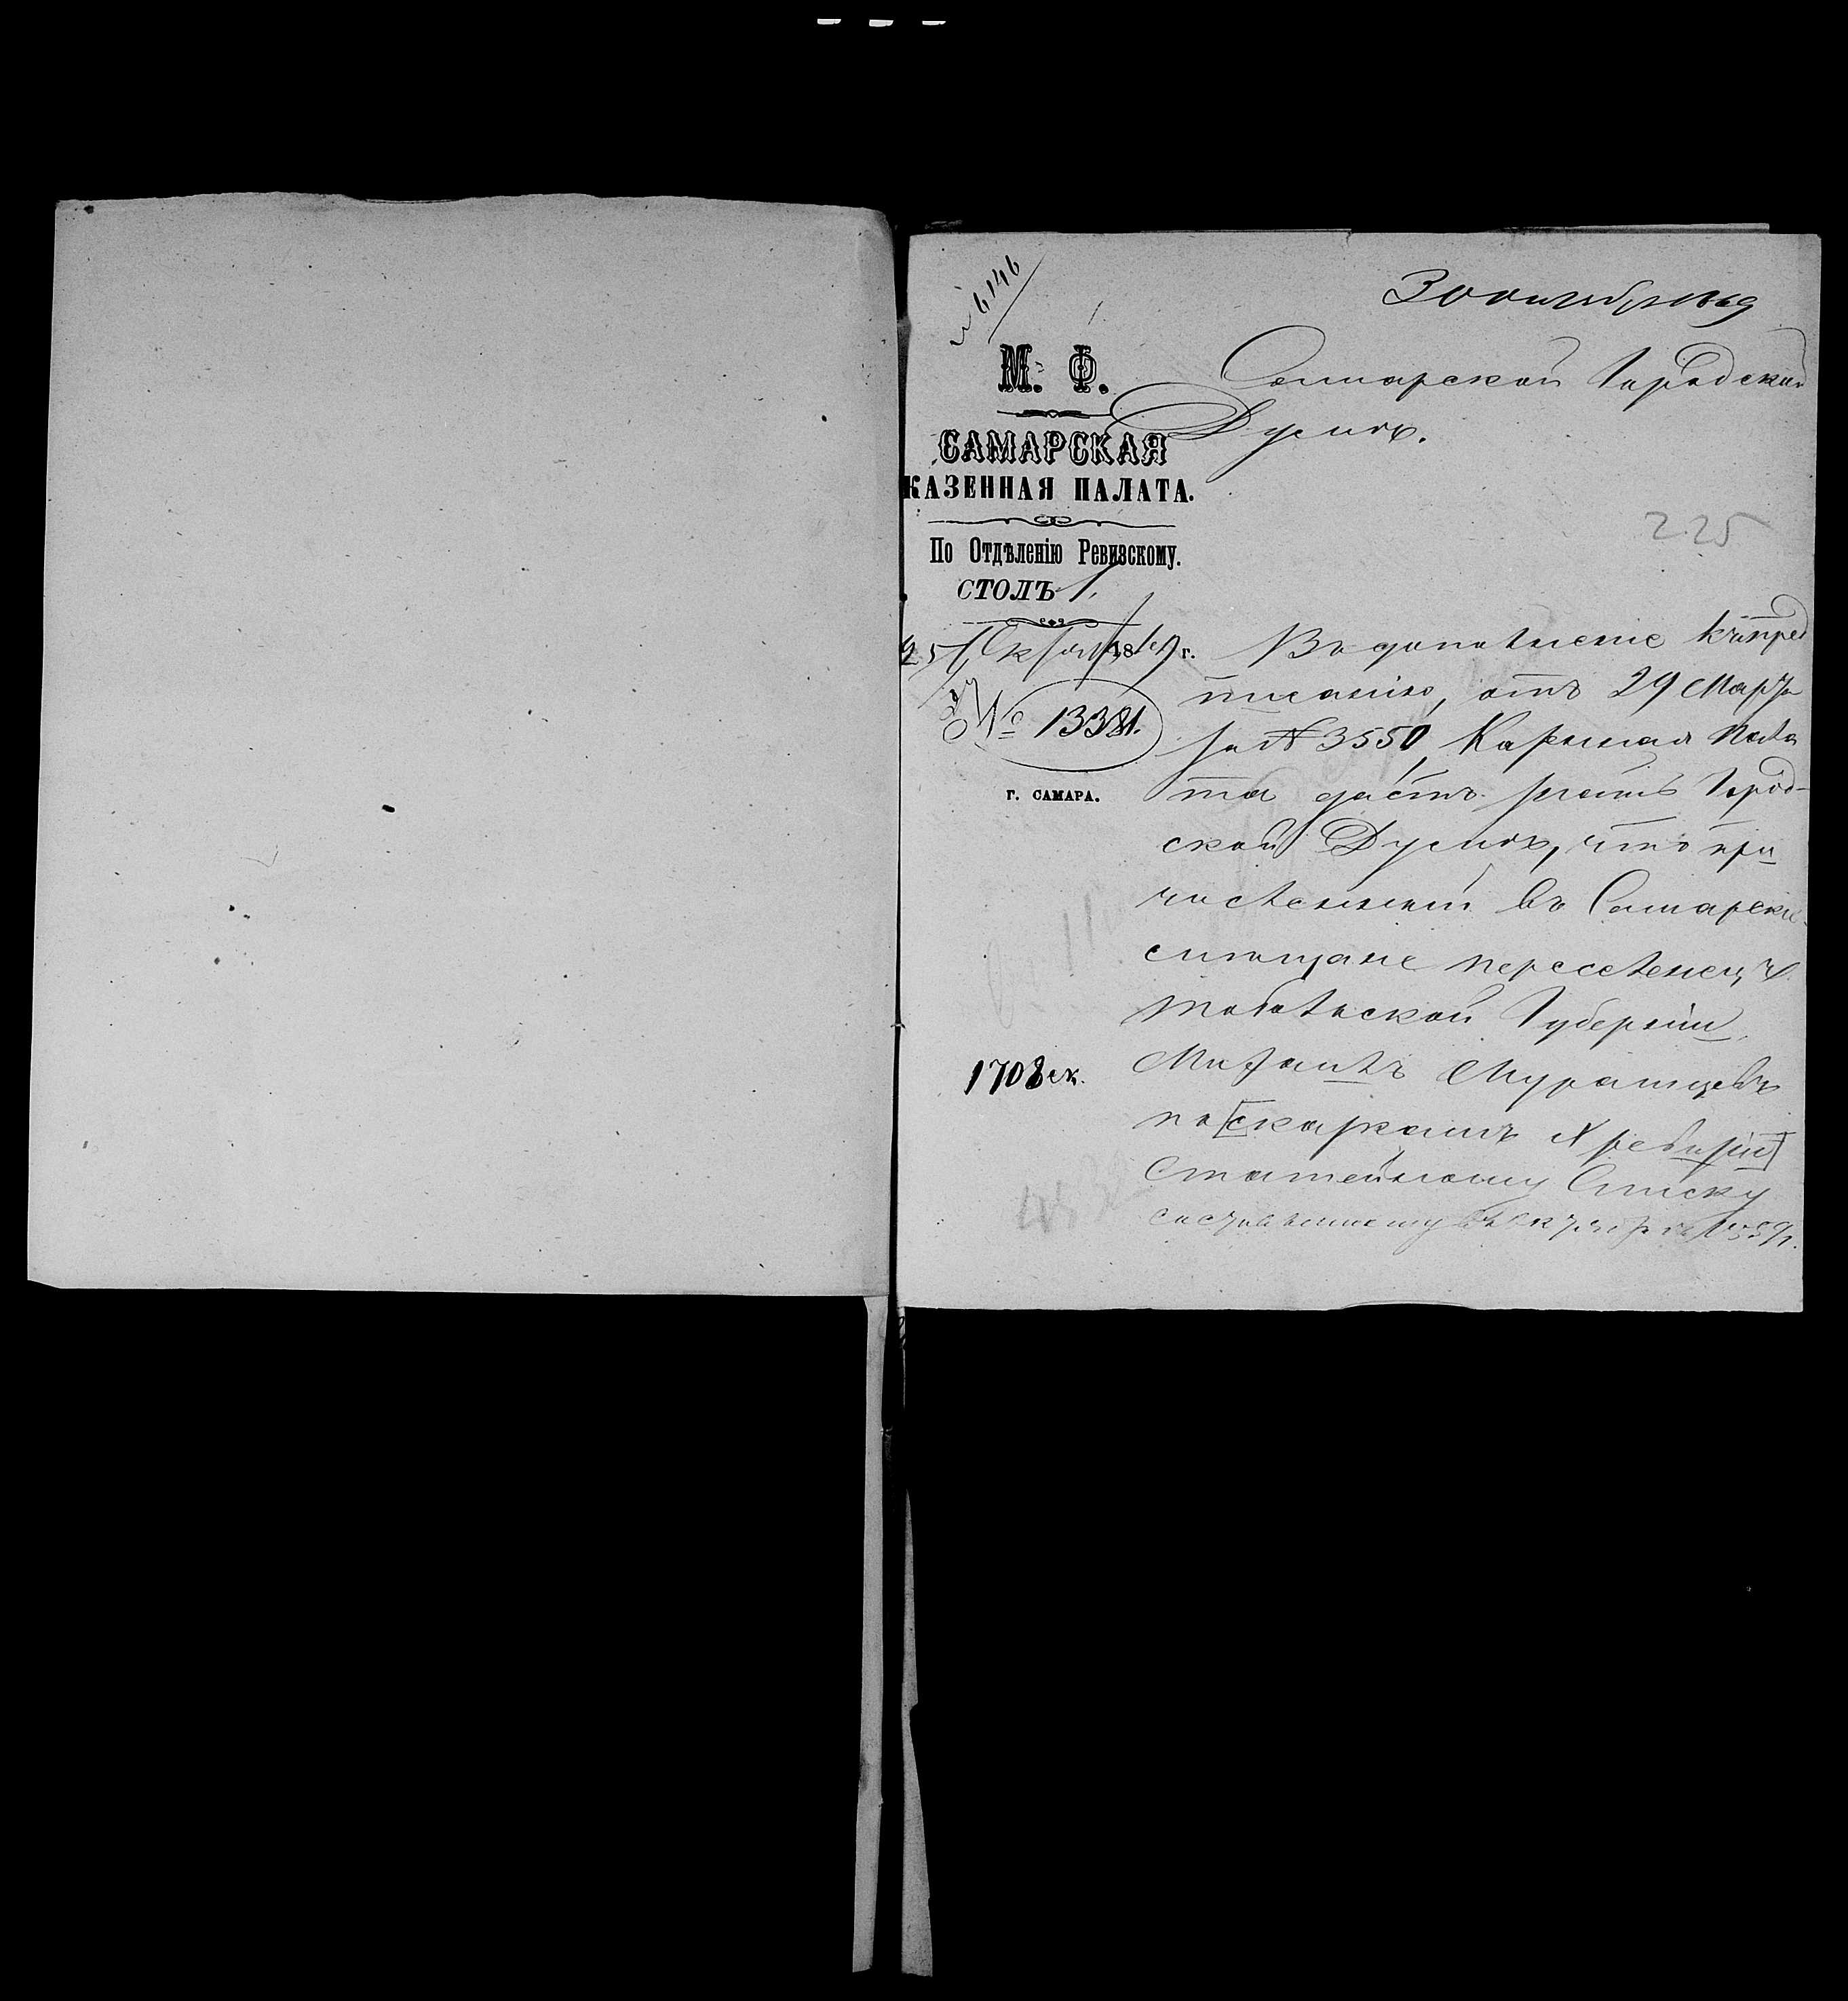 № 6146
30 октября 1869
М. Ф.
САМАРСКАЯ
КАЗЕННАЯ ПАЛАТА.
По Отдѣленію Ревизскому.
СТОЛЪ 1.
25 Октября 1869 г.
№ 13381.
Г. САМАРА.
Самарской Городской
Думѣ.
225
Въ дополненіе къ пред
писанію, отъ 29 Марта
за № 3550, Казенная Пала
та даетъ знать Город-
ской Думѣ, что при
численный въ Самарскіе
мѣщане переселенецъ
Тобольской Губерніи
1708 ск.
Муратцевъ
по [сказкамъ X ревизіи]
Статейному Списку
составленному въ 1859 г.